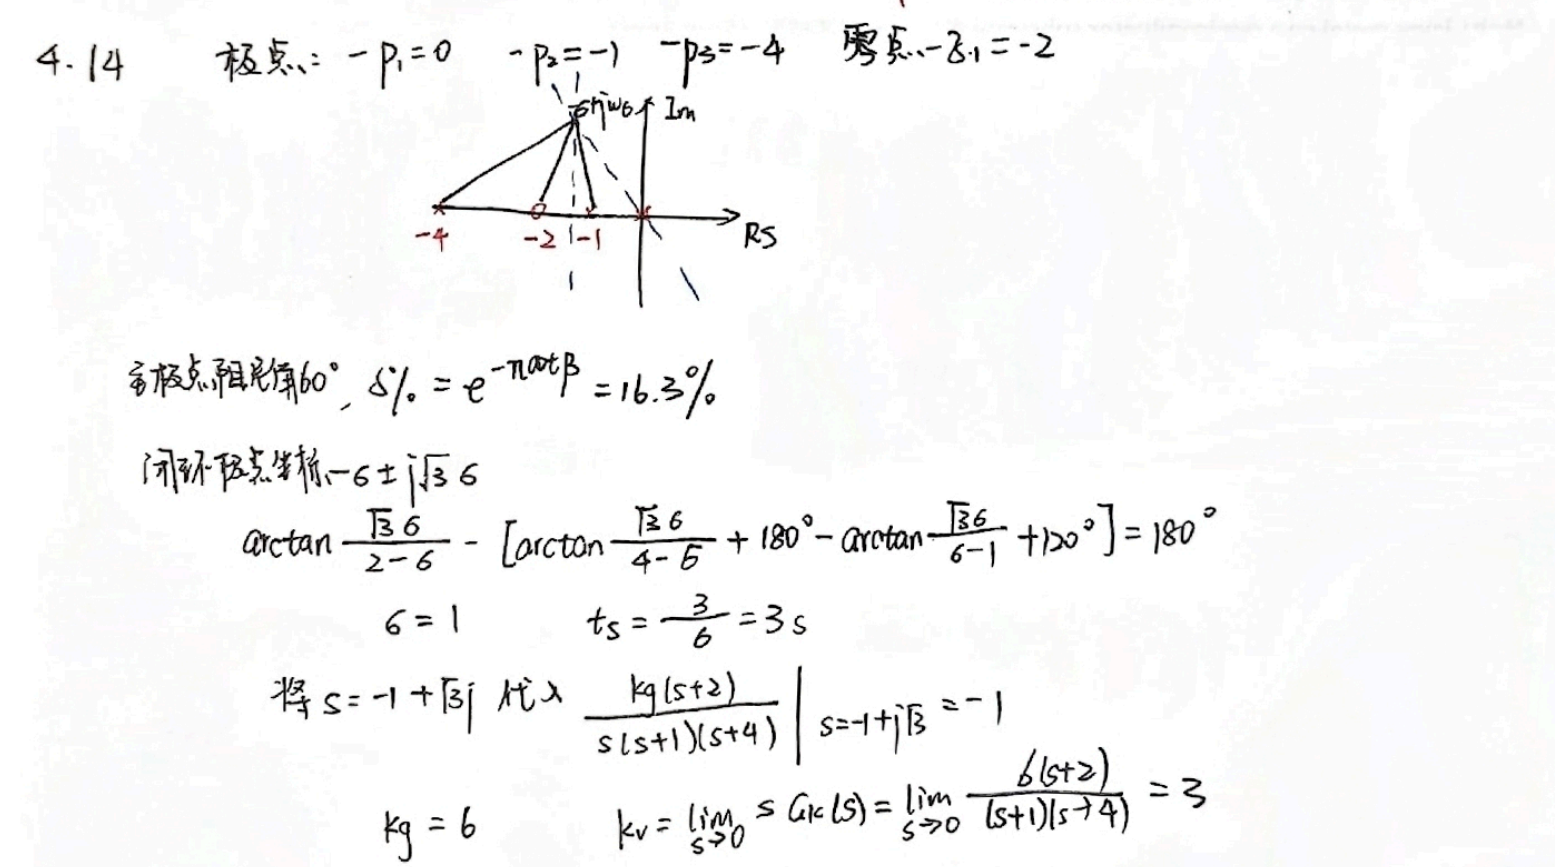 4.14 极点: -p₁=0 -p₂=-1 -p₃=-4 零点-z₁=-2
-σ+jω₀ Im
-4 -2 -1 RS
主极点阻尼角60°, δ% = e^{-πcotβ} = 16.3%
闭环极点坐标 -σ ± j√3 σ
arctan \frac{√3 σ}{2-σ} - [arctan \frac{√3 σ}{4-σ} + 180° - arctan \frac{√3σ}{σ-1} + 120°] = 180°
σ = 1 ts = \frac{3}{σ} = 3s
将 s = -1 + √3j 代入 \frac{kg(s+2)}{s(s+1)(s+4)} | s=-1+j√3 = -1
kg = 6 kv = \lim_{s→0} s Gk(s) = \lim_{s→0} \frac{6(s+2)}{(s+1)(s+4)} = 3